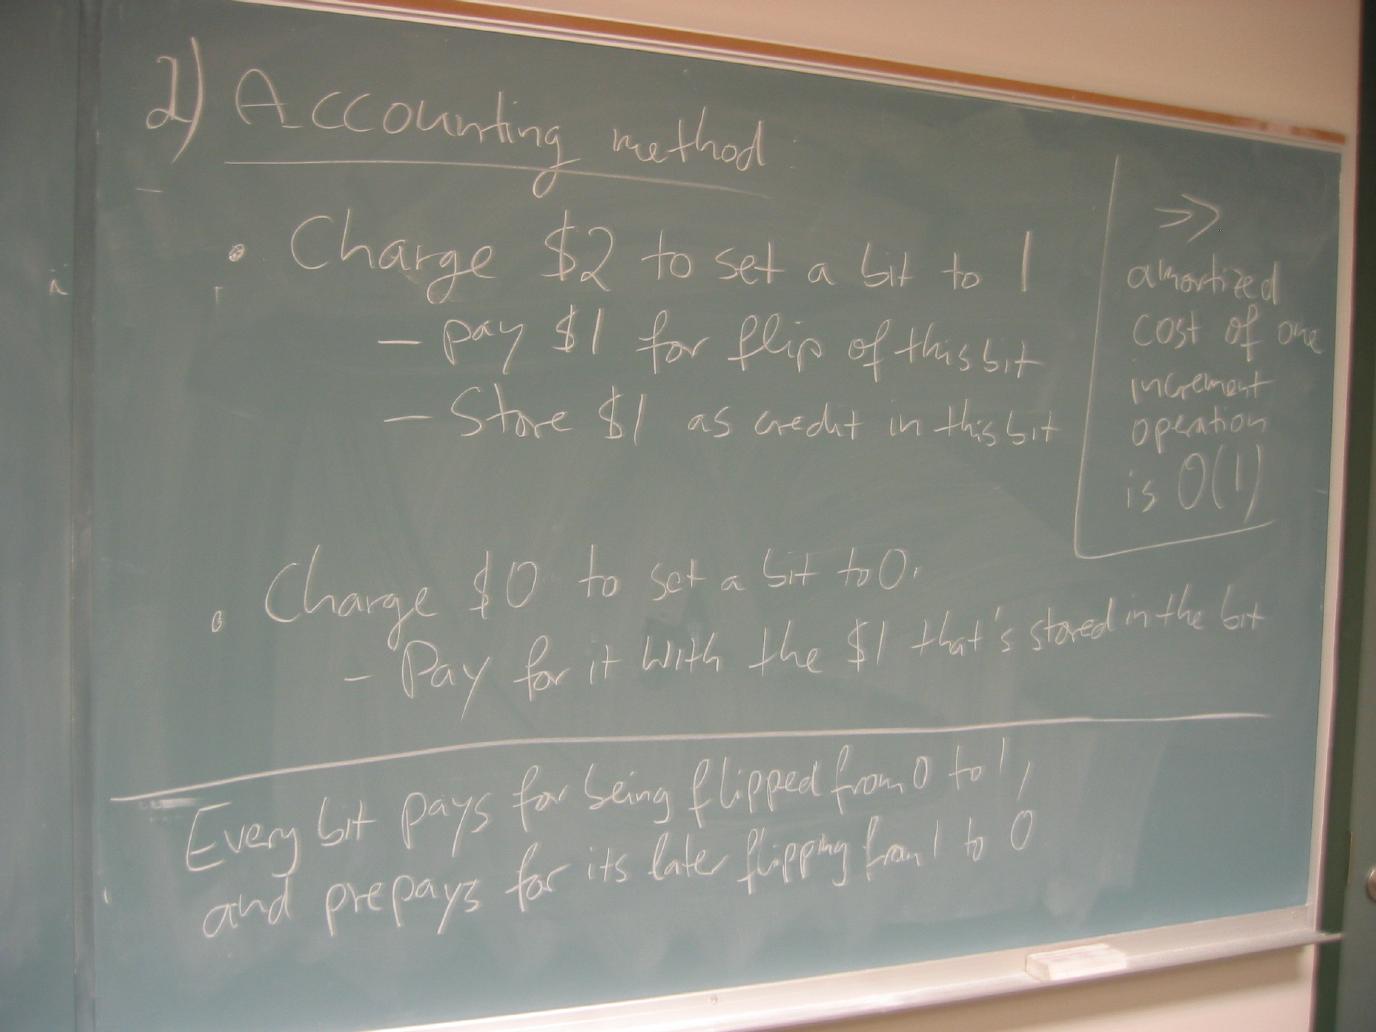 2) Accounting method:
• Charge $2 to set a bit to 1
– pay $1 for flip of this bit
– Store $1 as credit in this bit
• Charge $0 to set a bit to 0.
– Pay for it with the $1 that's stored in the bit
>>
amortized
cost of one
increment
operation
is O(1)
Every bit pays for being flipped from 0 to 1,
and prepays for its later flipping from 1 to 0